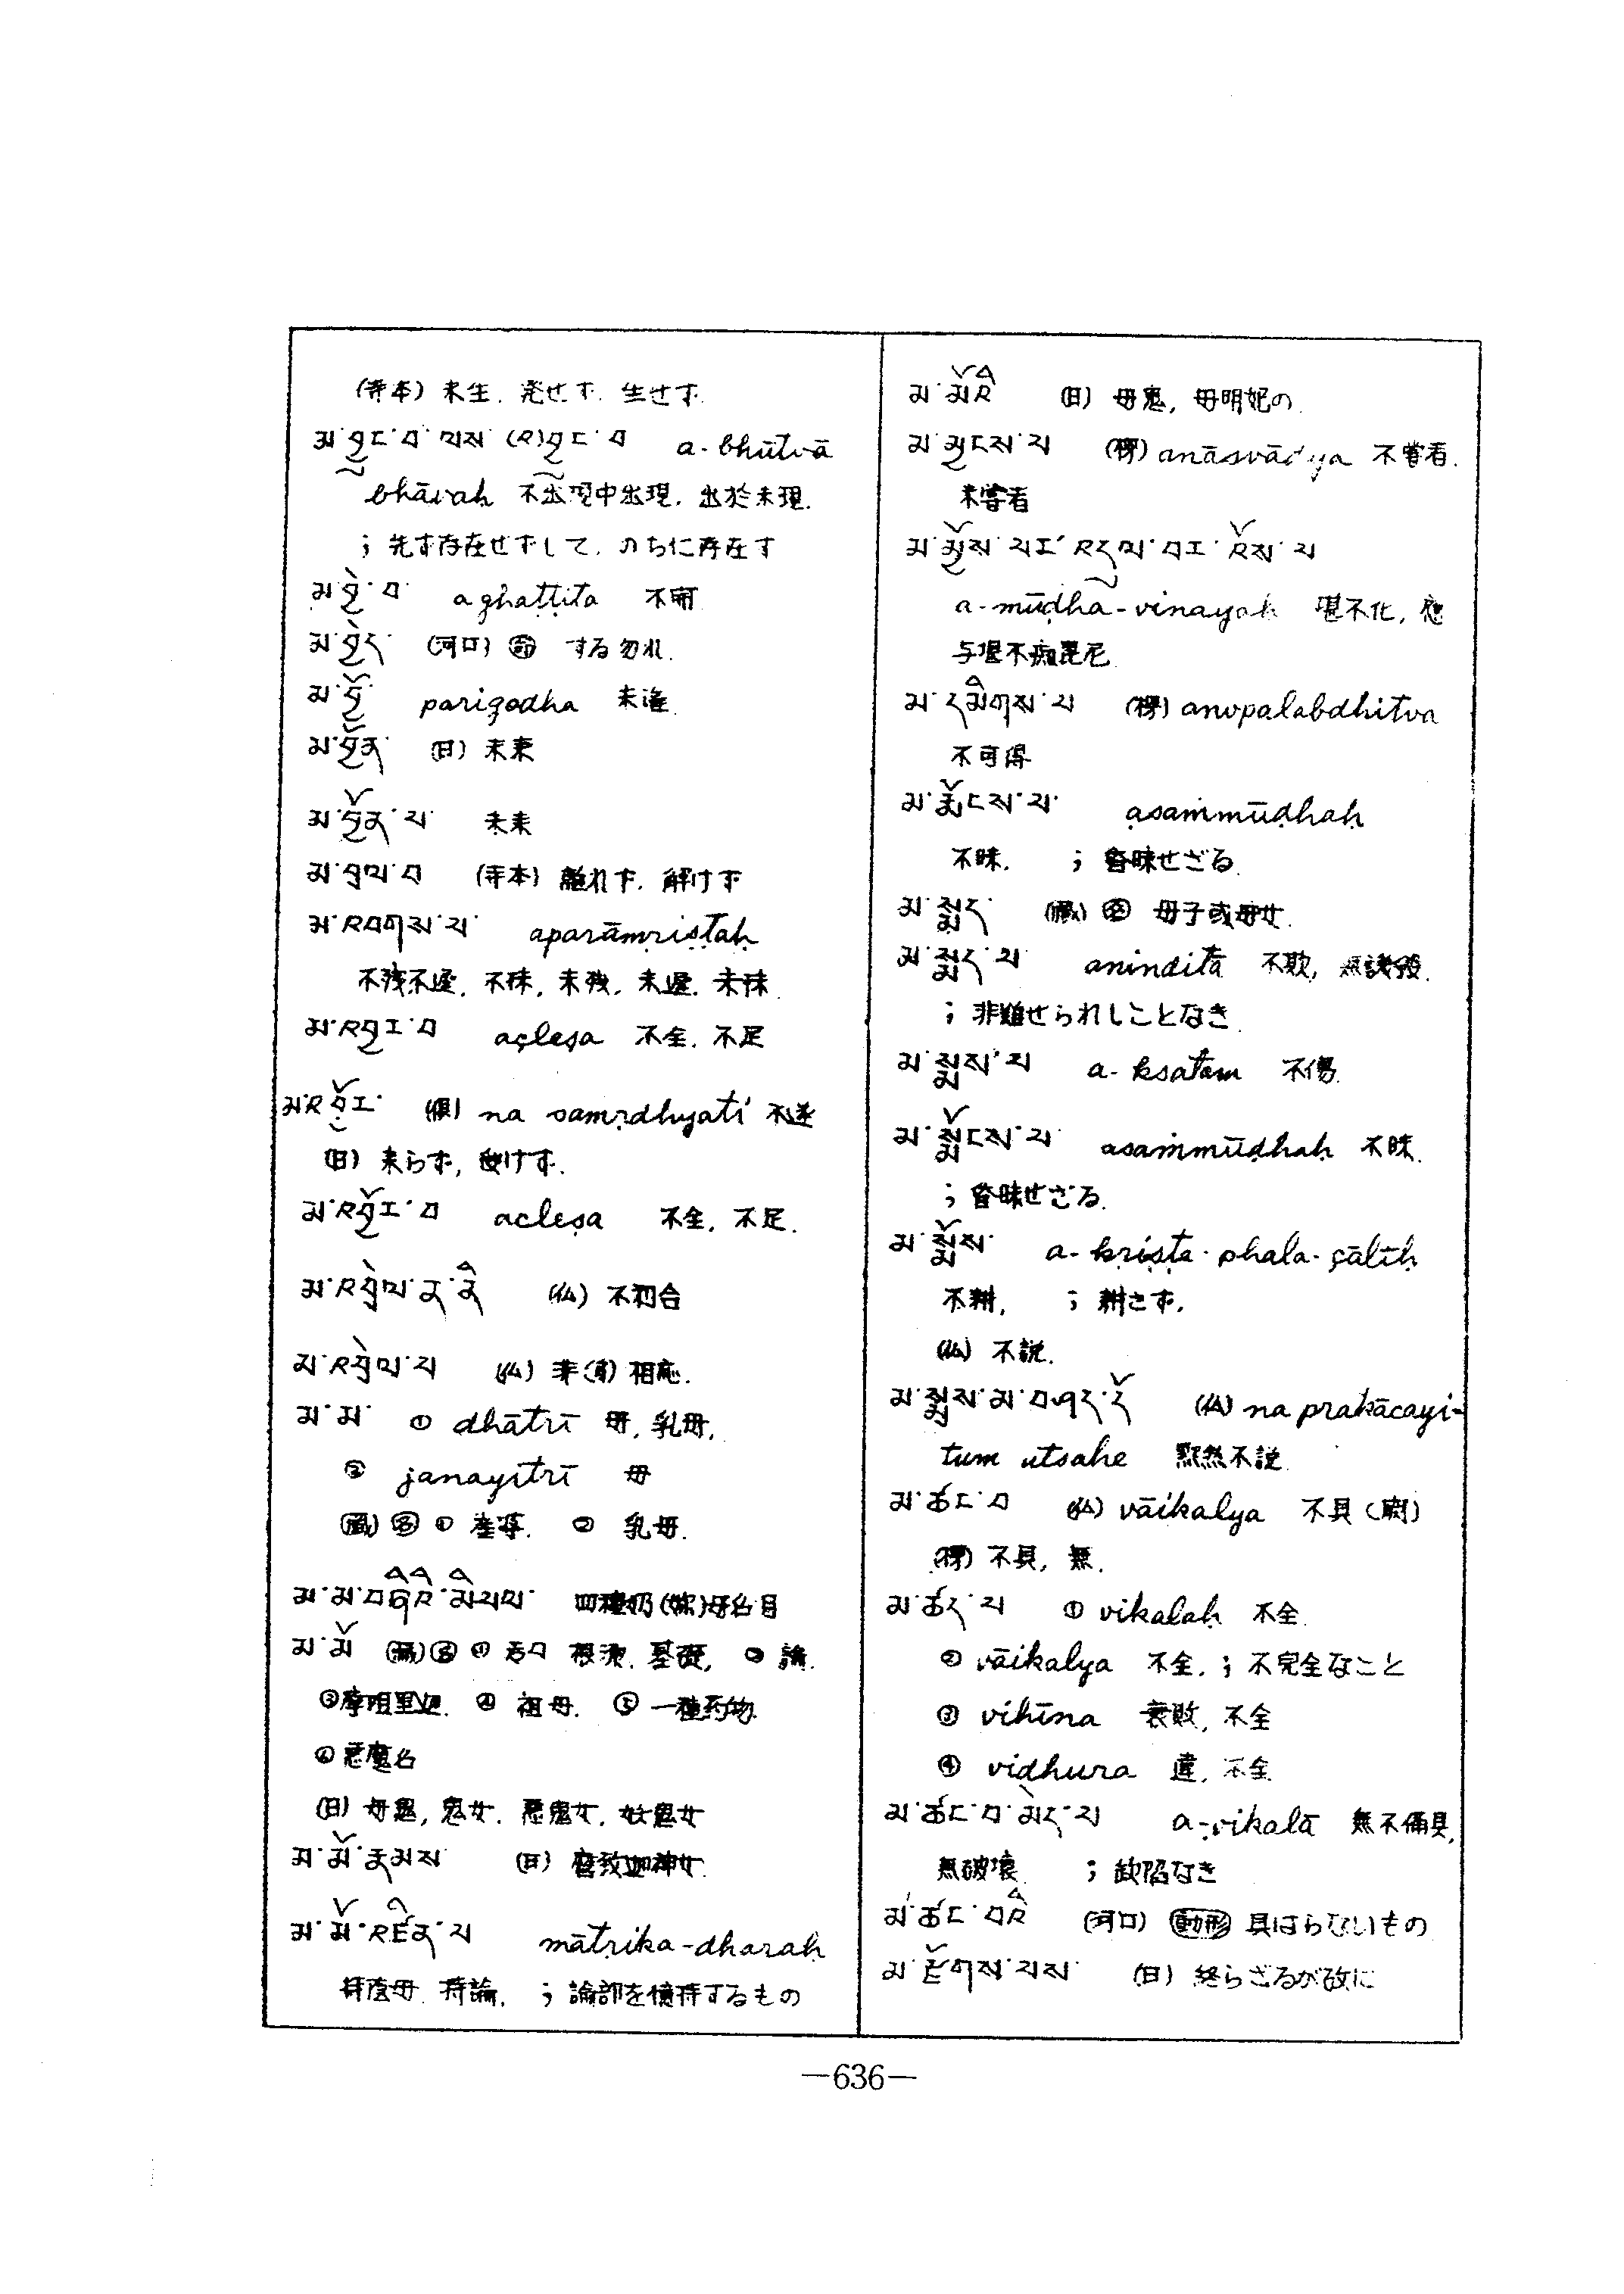 (寺本) 未生. 発せず. 生せず.
མ་བྱུང་བ་ལས་(འ)བྱུང་བ a-bhūtvā
bhāvaḥ 不出現中出現. 出於未現.
; 先ず存在せずして. のちに存在す
མ་བྱེ་བ aghaṭṭita 不開
མ་བྱེད (河口) する勿れ.
མ་བྱོ parigodha 未滝
མ་བྱོན (日) 未来
མ་བྱོན་པ 未来
མ་བྲལ་བ (寺本) 離れず. 解けず
མ་འབགས་པ aparāmṛiṣṭaḥ
不残不遅. 不殊. 未残. 未遅. 未殊.
མ་འབྱར་བ açleṣa 不全. 不足
མ་འབྱོར (倶) na samṛdhyati 不遂
(日) 来らず, 受けず.
མ་འབྱོར་བ acleṣa 不全, 不足.
མ་འབྲེལ་ན་ནི (仏) 不和合
མ་འབྲེལ་པ (仏) 非(有)相応.
མ་མ ① dhātrī 母, 乳母,
② janayitrī 母
(蔵) ① 産婆. ② 乳母.
མ་མ་བཞིའི་མིང་ལ 四種奶(嫲)母名目
མ་མོ (蔵) ① 根源. 基礎, ② 論.
③摩怛里迦. ④ 祖母. ⑤ 一種药物
⑥悪魔名
(日) 母鬼, 鬼女. 悪鬼女. 妖鬼女
མ་མོ་རྣམས (日) 摩致迦神女.
མ་མོ་འཛིན་པ mātṛika-dharaḥ
持陰母. 持論. ; 論部を憶持するもの
མ་མོའི (日) 母鬼, 母明妃の.
མ་མྱངས་པ (梶) anāsvādya 不嘗看.
未嘗看
མ་མྱོས་པར་འདུལ་བར་འོས་པ
a-mūḍha-vinayaḥ 堪不化, 應
与堪不痴毘尼.
མ་དམིགས་པ (梶) anupalabdhitva
不可得
མ་རྨོངས་པ asaṁmūḍhaḥ
不昧. ; 昏昧せざる.
མ་སྨད (蔵) 母子或母女.
མ་སྨད་པ aninditā 不欺, 無譏毀.
; 非難せられしことなき.
མ་སྨས་པ a-ksatam 不傷.
མ་སྨོངས་པ asaṁmūḍhaḥ 不昧.
; 昏昧せざる.
མ་སྨོས a-kṛiṣṭa-phala-çāliḥ
不耕, ; 耕さず.
(仏) 不説.
མ་སྨྲས་མ་བཤད་དོ (仏) na prakācayi-
tum utsahe 黙然不説
མ་ཚང་བ (仏) vāikalya 不具(闕)
(梶) 不具, 無.
མ་ཚད་པ ① vikalaḥ 不全.
② vāikalya 不全, ; 不完全なこと
③ vihīna 衰敗, 不全
④ vidhura 違, 不全
མ་ཚང་བ་མེད་པ a-vikalā 無不備具,
無破壊. ; 欠陥なき
མ་ཚང་བའི (河口) 動形 具はらないもの
མ་རྫོགས་པས (日) 終らざるが故に
—636—